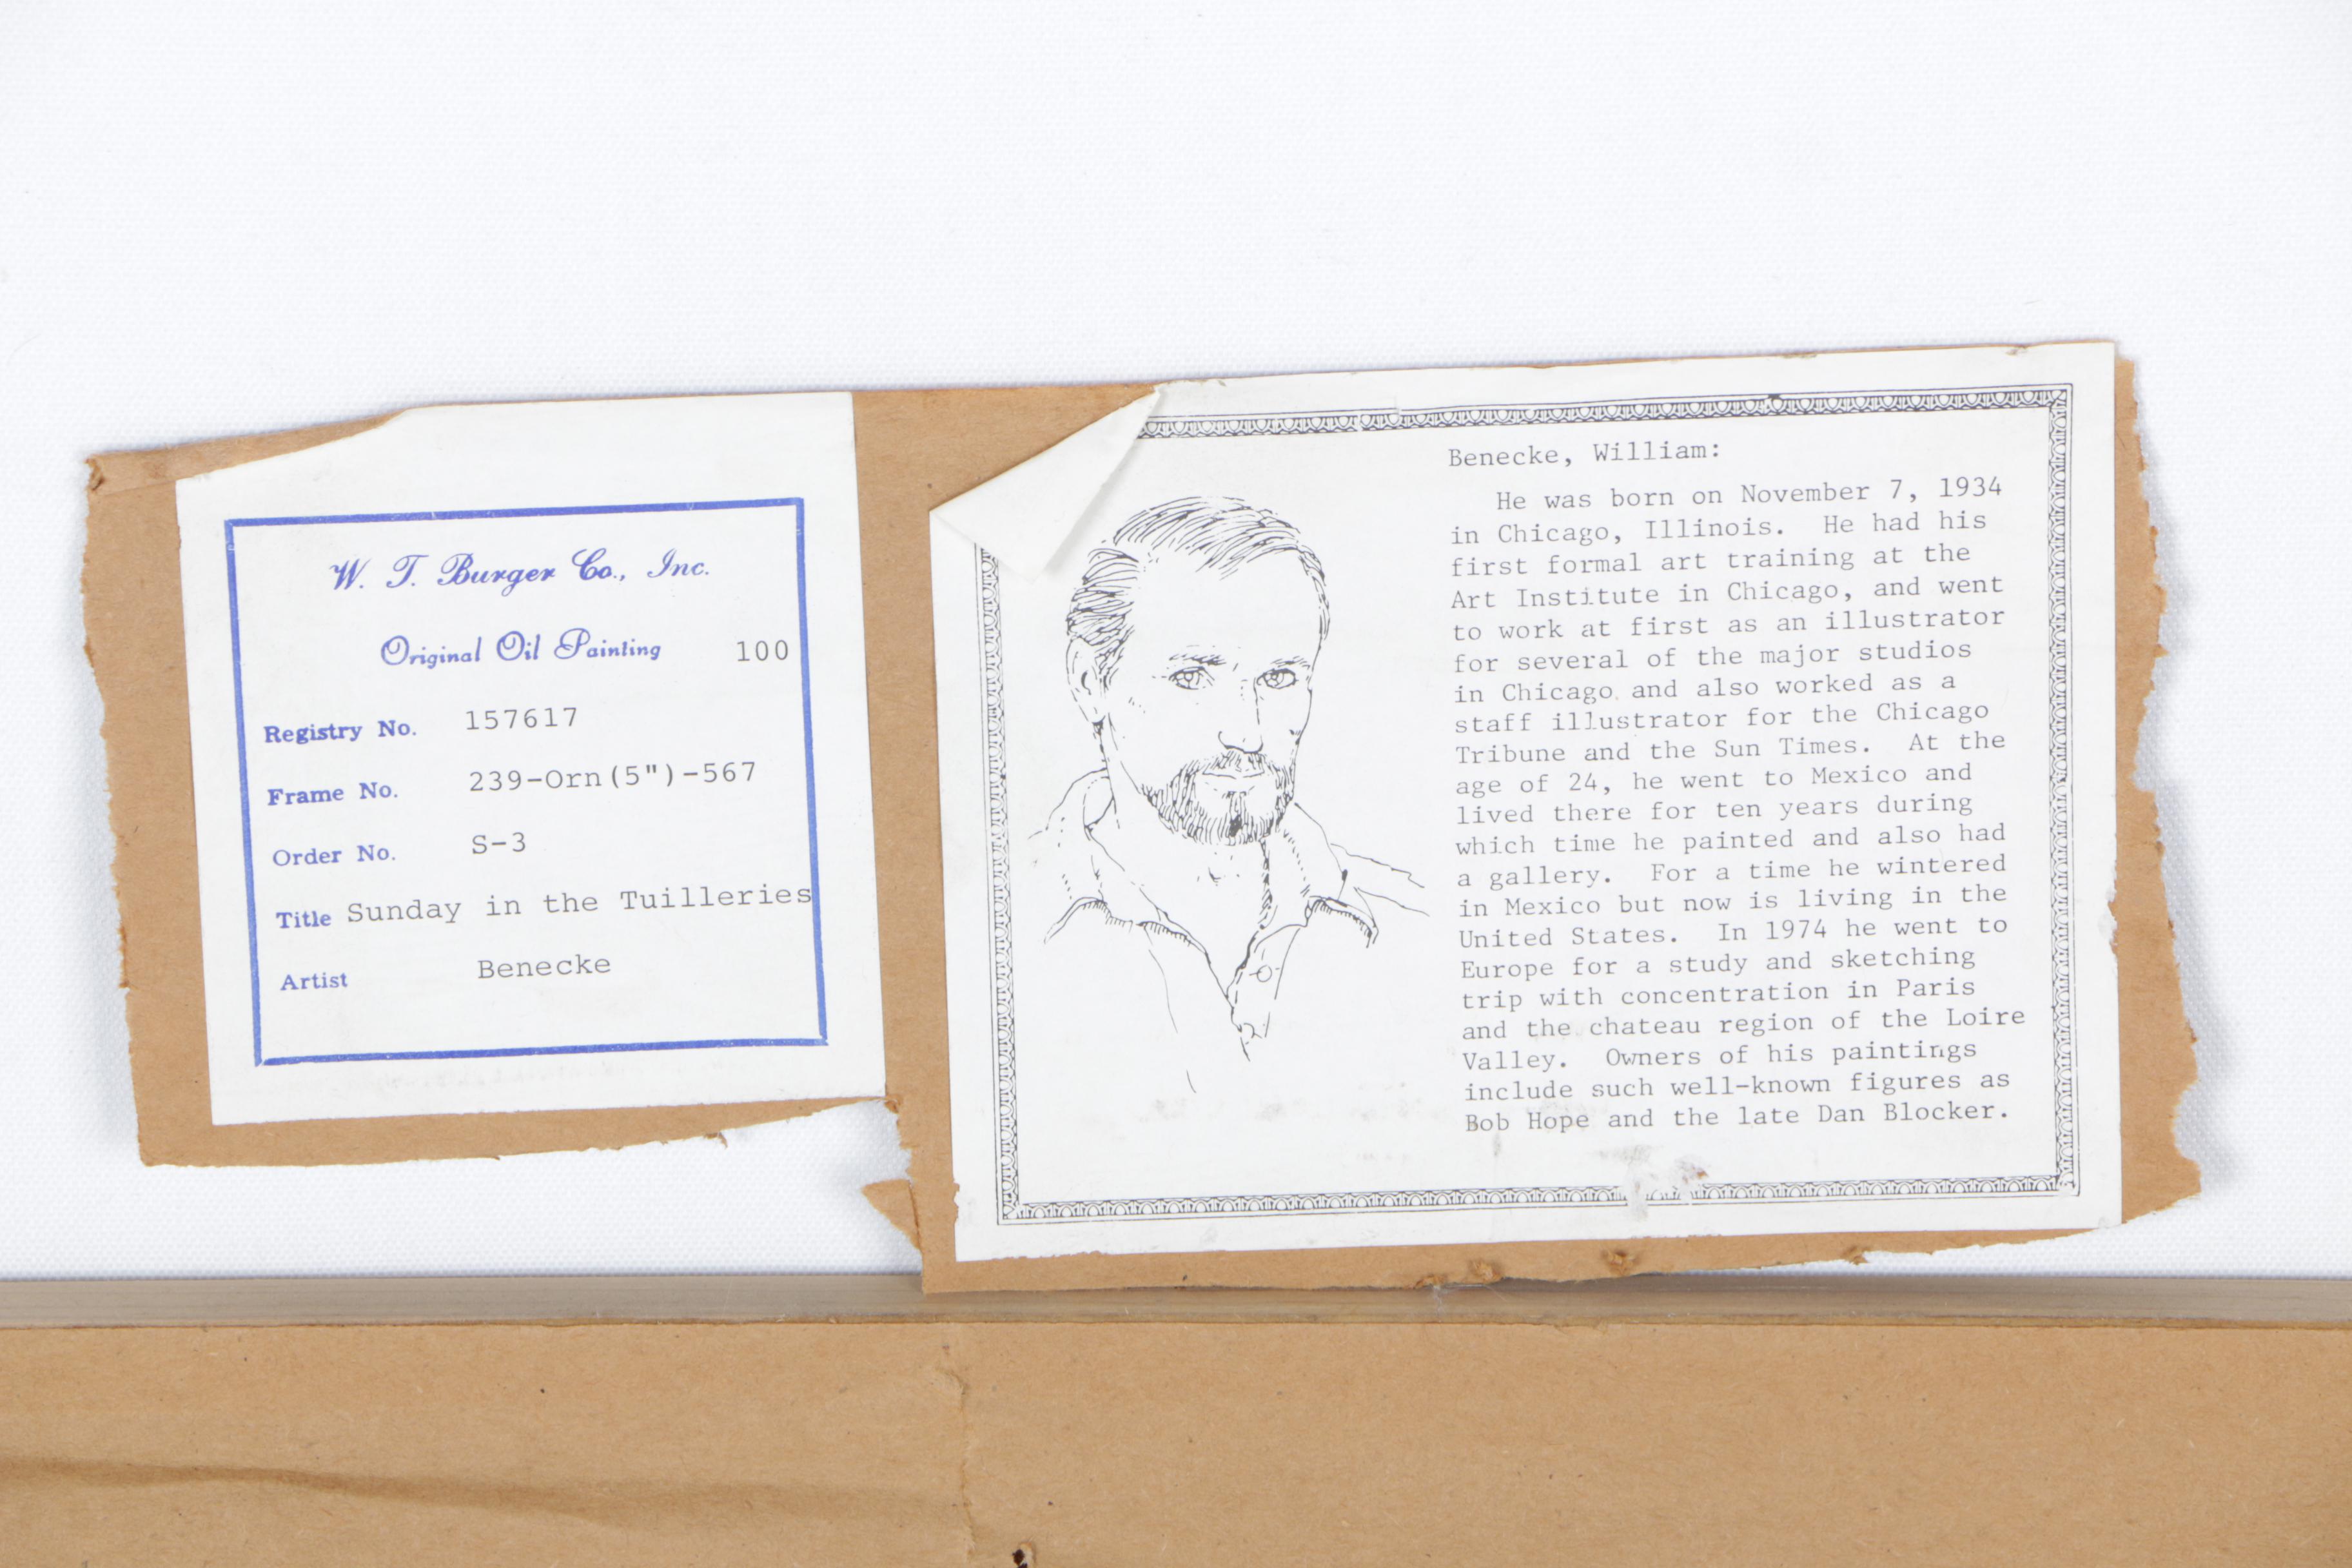 W. T. Burger Co., Inc.
Original Oil Painting 100
Registry No. 157617
Frame No. 239-Orn(5")-567
Order No. S-3
Title Sunday in the Tuilleries
Artist Benecke
Benecke, William:
He was born on November 7, 1934
in Chicago, Illinois. He had his
first formal art training at the
Art Institute in Chicago, and went
to work at first as an illustrator
for several of the major studios
in Chicago and also worked as a
staff illustrator for the Chicago
Tribune and the Sun Times. At the
age of 24, he went to Mexico and
lived there for ten years during
which time he painted and also had
a gallery. For a time he wintered
in Mexico but now is living in the
United States. In 1974 he went to
Europe for a study and sketching
trip with concentration in Paris
and the chateau region of the Loire
Valley. Owners of his paintings
include such well-known figures as
Bob Hope and the late Dan Blocker.